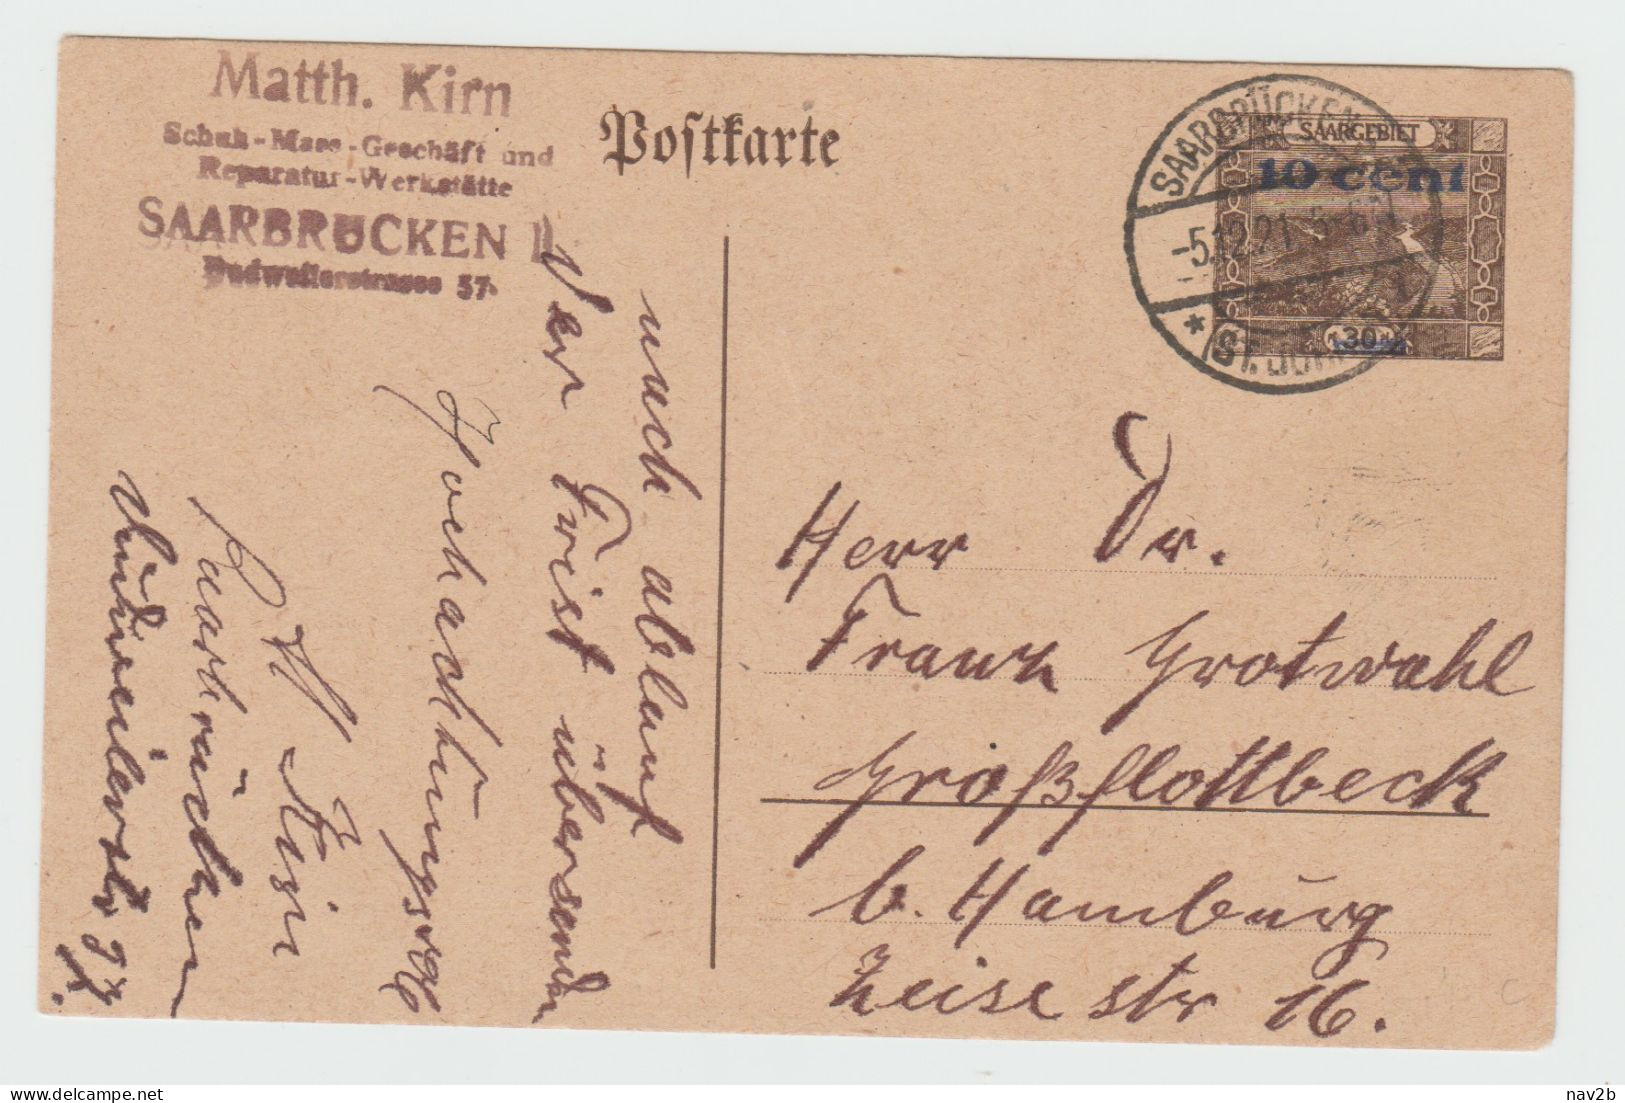 Matth. Kirn
Schuh-Mass-Geschäft und
Reparatur-Werkstätte
SAARBRÜCKEN
Dudweilerstrasse 57
Postkarte
SAARBRÜCKEN
-5.12.21. 5-6 N
* ST. JOH
SAARGEBIET
10 cent
30
Herr Dr.
Franz Grotwahl
Großflottbeck
b. Hamburg
Zeise str 16.
nach ablauf
der Frist übersenden
Hochachtungsvoll
M Kirn
Saarbrücken
Dudweilerstr 57
nav2b